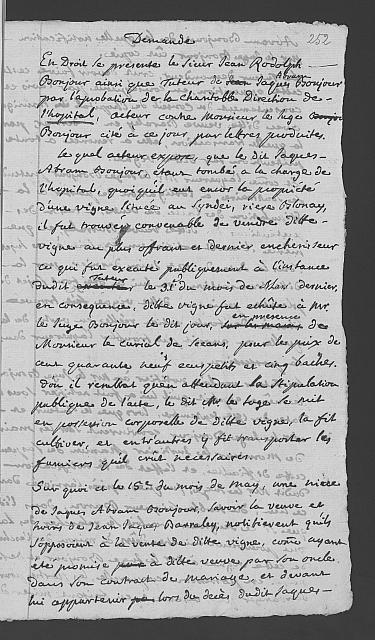 Demande
252
En Droit se présente le Sieur Jean Rodolph
Bonjour ainsi que tuteur de Jaques Abram Bonjour
par l'aprobation de la charitable Direction de
l'hopital, acteur contre Monsieur le Juge
Bonjour cité à ce jour par lettres produites.
Lequel acteur expose, que le dit Jaques
Abram Bonjour, étant tombé à la charge de
l'hopital, quoiqu'il eut encor la propriété
d'une vigne située au Syndec, riere Blonay,
il fut trouvé convenable de vendre ditte
vigne au plus offrant et dernier encherisseur
ce qui fut executé publiquement à l'instance
dudit tuteur le 31e du mois de Mars dernier,
en consequence, ditte vigne fut echûte à Mr
le Juge Bonjour le dit jour, en presence de
Monsieur le curial de Joceans, pour le prix de
cent quarante neuf ecuspetits et cinq baches.
D'ou il resultat qu'en attendant la Stipulation
publique de l'acte, le dit Mr le Juge se mit
en possession corporelle de ditte vigne, la fit
cultiver, et entr'autres y fit transporter les
fumiers qu'il crut necessaires.
Sur quoi et le 15e du mois de May, une niece
de Jaques Abram Bonjour, savoir la veuve et
hoirs de Jean Jaques Darraley, notifierent qu'ils
s'opposoient à la vente de ditte vigne, come ayant
eté promise à ditte veuve par son oncle
dans son contract de mariage, et devant
lui appartenir lors du decès dudit Jaques